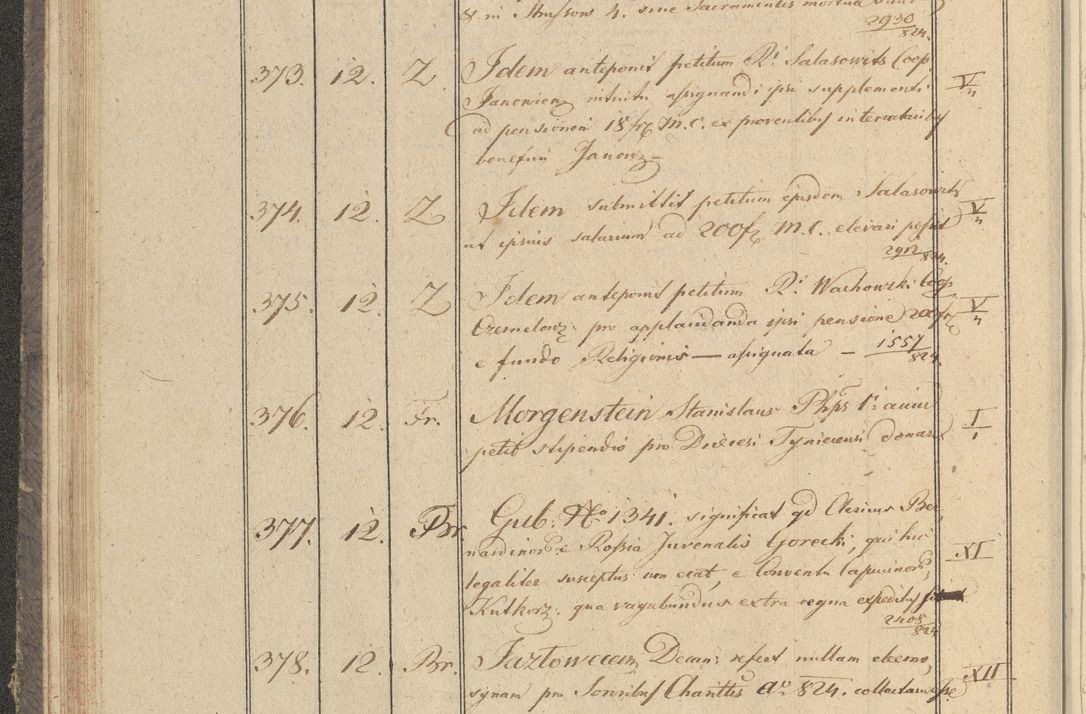 & in Strussow 4. sine Sacramentis mortua sunt
2930/824.
373. 12. Z. Idem anteponit petitum R. Salasowits Coop. V/4
Janovien intuitu assignandi ipsi supplementi
ad pensionem 18 fr M.C. ex proventibus intercalaribus
beneficii Janow
374. 12. Z Idem submittit petitum ejusdem Salasowits V/4
ut ipsius salarium ad 200 fr M.C. elevari possit
2912/824.
375. 12. Z Idem anteponit petitum R. Wachowski Coop V/4
Czemelow: pro applacidanda ipsi pensione 200 fr
e fundo Religionis — assignata — 1557/824.
376. 12. Fr. Morgenstein Stanislaus Phps 1i anni I/1
petit stipendio pro Dioecesi Tyniecensi donari
377. 12. Br. Gub. No 1341. significat qd Clericus Ber
nardinor. e Rossia Juvenalis Gorecki, qui huc XI
legaliter susceptus non erat, e Conventu Capucinor,
Kutkorz. qua vagabundus extra regna expeditus
2408/824
378. 12. Br. Jazlowecen Decan: refert nullam eleemo, XII
synam pro Sororibus Charittis ao 824. collectam esse